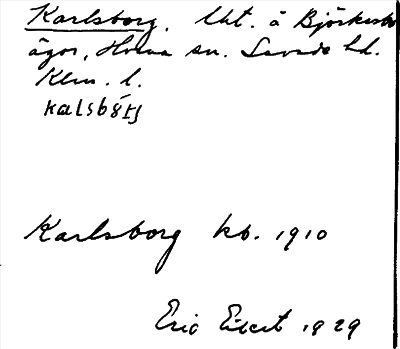 Karlsborg. Uht. å Björkesbo
ägor, Horna sn. Sevede hd.
Klm. l.
Karlsborg kb. 1910
Eric Ekert 1929